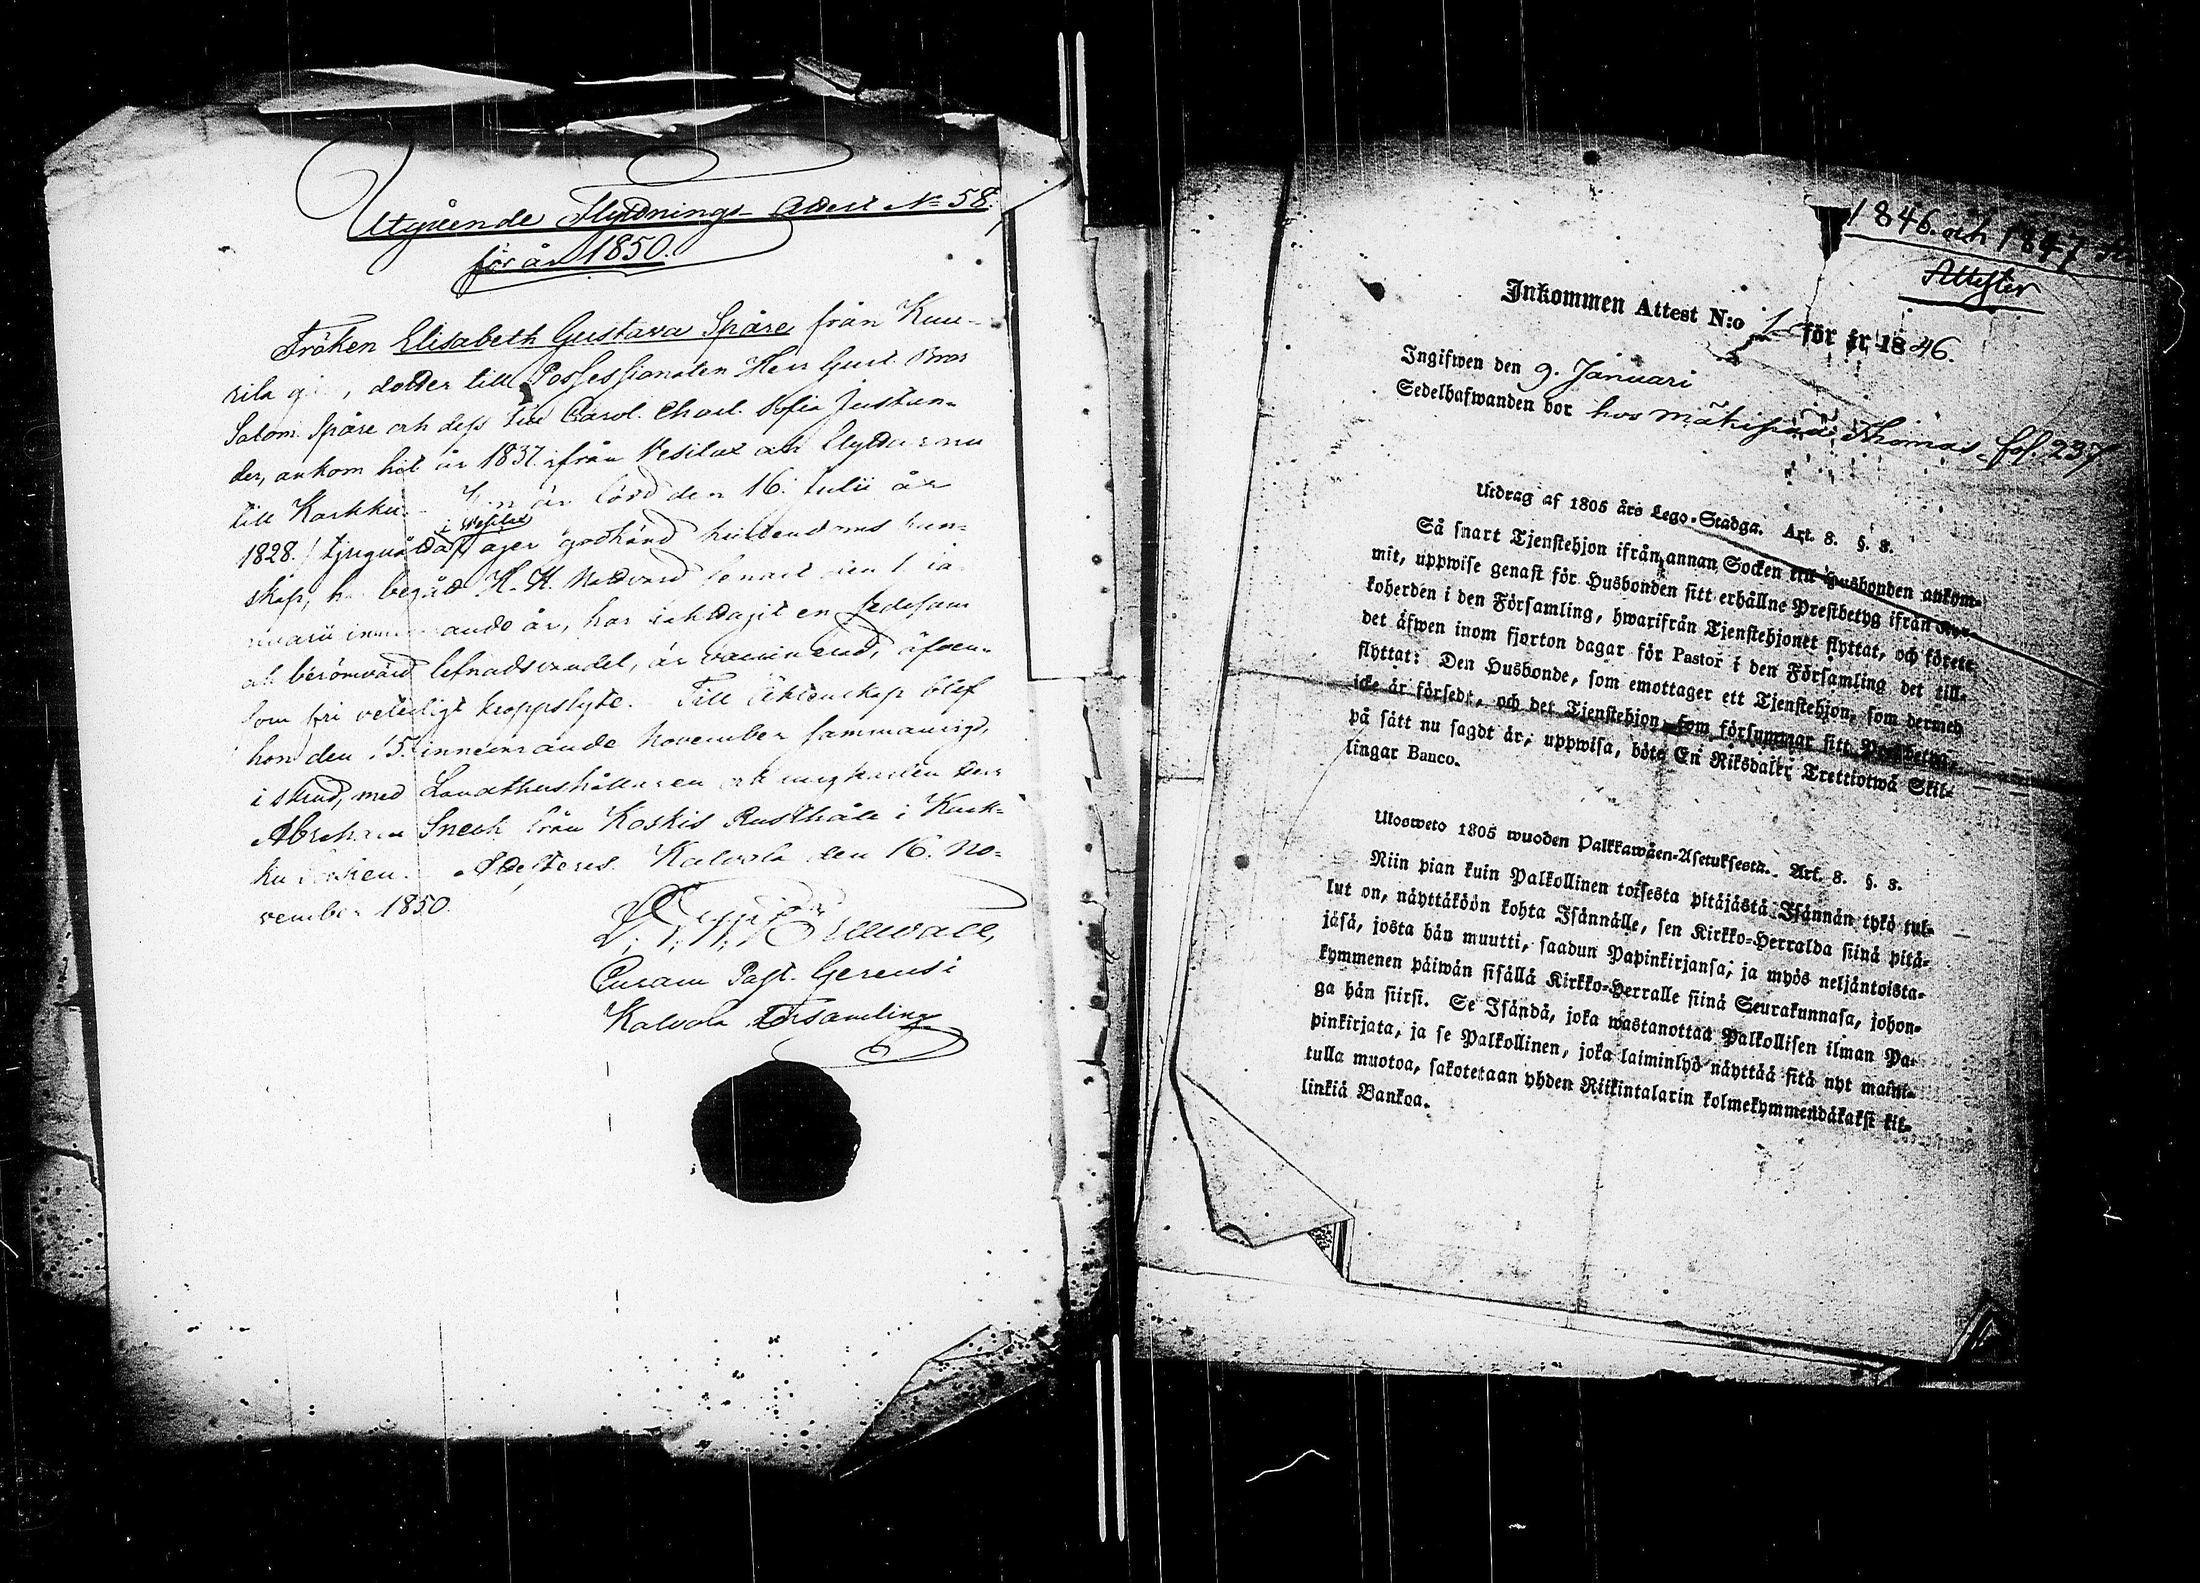 Utgående Flyttnings-Attest № 58,
för år 1850.
Fröken Elisabeth Gustava Spåre från Kuu-
rila, dotter till Possessionaten Herr Gust.
Salom. Spåre och dess Fru Carol. Charl. Sofia Justan-
der, ankom hit år 1837 ifrån Vesilax och flyttar nu
till Karkku. Hon är född den 16. Julii år
i Vesilax
1828. äger godkänd kristendoms kun-
skap, har begått H. H. Nattvard senast den 1 ja-
nuarii innevarande år, har iakttagit en sedesam
och berömvärd lefnadsvandel, är vaccinerad, äfven-
som fri veterligt kroppslyte. Till Äktenskap blef
hon den 15. innevarande November sammanvigd,
i stånd, med Landthushållaren och ungkarlen Herr
Abraham Sneck från Koskis Rusthåll i Kark-
ku socken. Attesteras. Kalvola den 16. No-
vember 1850.
Curam Past. Gerens i
Kalvola Församling
1846. och 1847
Attester
Inkommen Attest N:o 1 för år 1846.
Ingifwen den 9. Januari
Sedelhafwanden bor hos Mäkipää Thomas fol. 237.
Utdrag af 1805 års Lego-Stadga. Art. 8. §. 8.
Så snart Tjenstehjon ifrån annan Socken till Husbonden ankom-
mit, uppwise genast för Husbonden sitt erhållne Prestbetyg ifrån Kyr-
koherden i den Församling, hwarifrån Tjenstehjonet flyttat, och förete
det äfwen inom fjorton dagar för Pastor i den Församling det till-
flyttat: Den Husbonde, som emottager ett Tjenstehjon, som dermed
icke är försedt, och det Tjenstehjon, som försummar sitt Prestbetyg,
på sätt nu sagdt är, uppwisa, böte En Riksdaler Trettiotwå Skil-
lingar Banco.
Ulosweto 1805 wuoden Palkkawäen-Asetuksesta. Art. 8. §. 8.
Niin pian kuin Palkollinen toisesta pitäjästä Isännän tykö tul-
lut on, näyttäköön kohta Isännälle, sen Kirkko-Herralda siinä pitä-
jäsä, josta hän muutti, saadun Papinkirjansa, ja myös neljäntoista-
kymmenen päiwän sisällä Kirkko-Herralle siinä Seurakunnasa, johon-
ga hän siirsi. Se Isändä, joka wastanottaa Palkollisen ilman Pa-
pinkirjata, ja se Palkollinen, joka laiminlyö näyttää sitä nyt maini-
tulla muotoa, sakotetaan yhden Riikintalarin kolmekymmendäkaksi kil-
linkiä Bankoa.